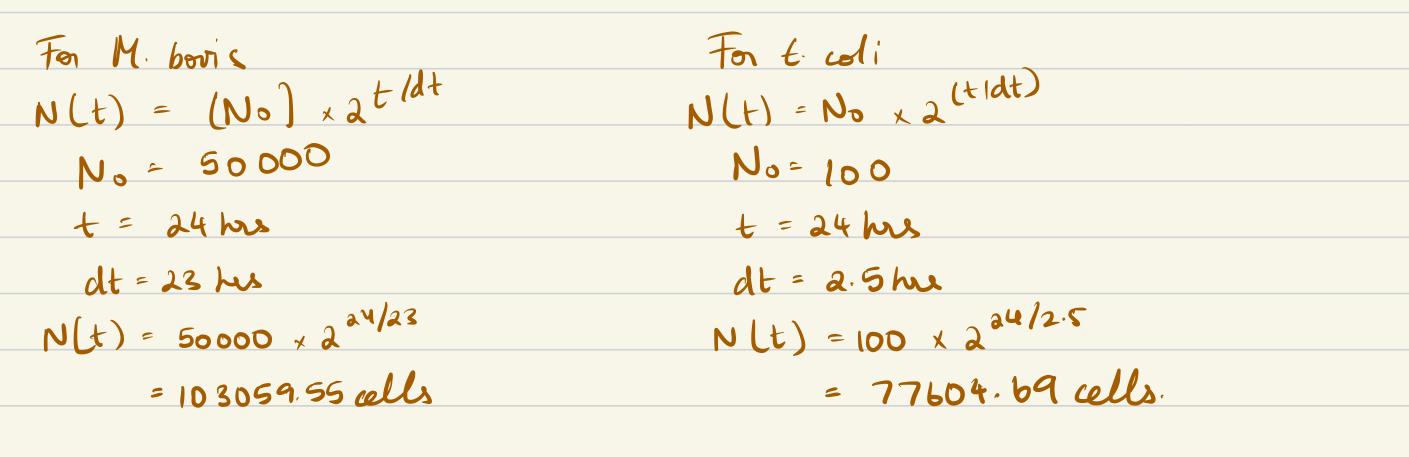 For M. bovis
N(t) = (N₀] × 2^t/dt
N₀ = 50000
t = 24 hrs
dt = 23 hrs
N(t) = 50000 × 2^24/23
= 103059.55 cells
For E. coli
N(t) = N₀ × 2^(t/dt)
N₀ = 100
t = 24 hrs
dt = 2.5 hrs
N(t) = 100 × 2^24/2.5
= 77604.69 cells.